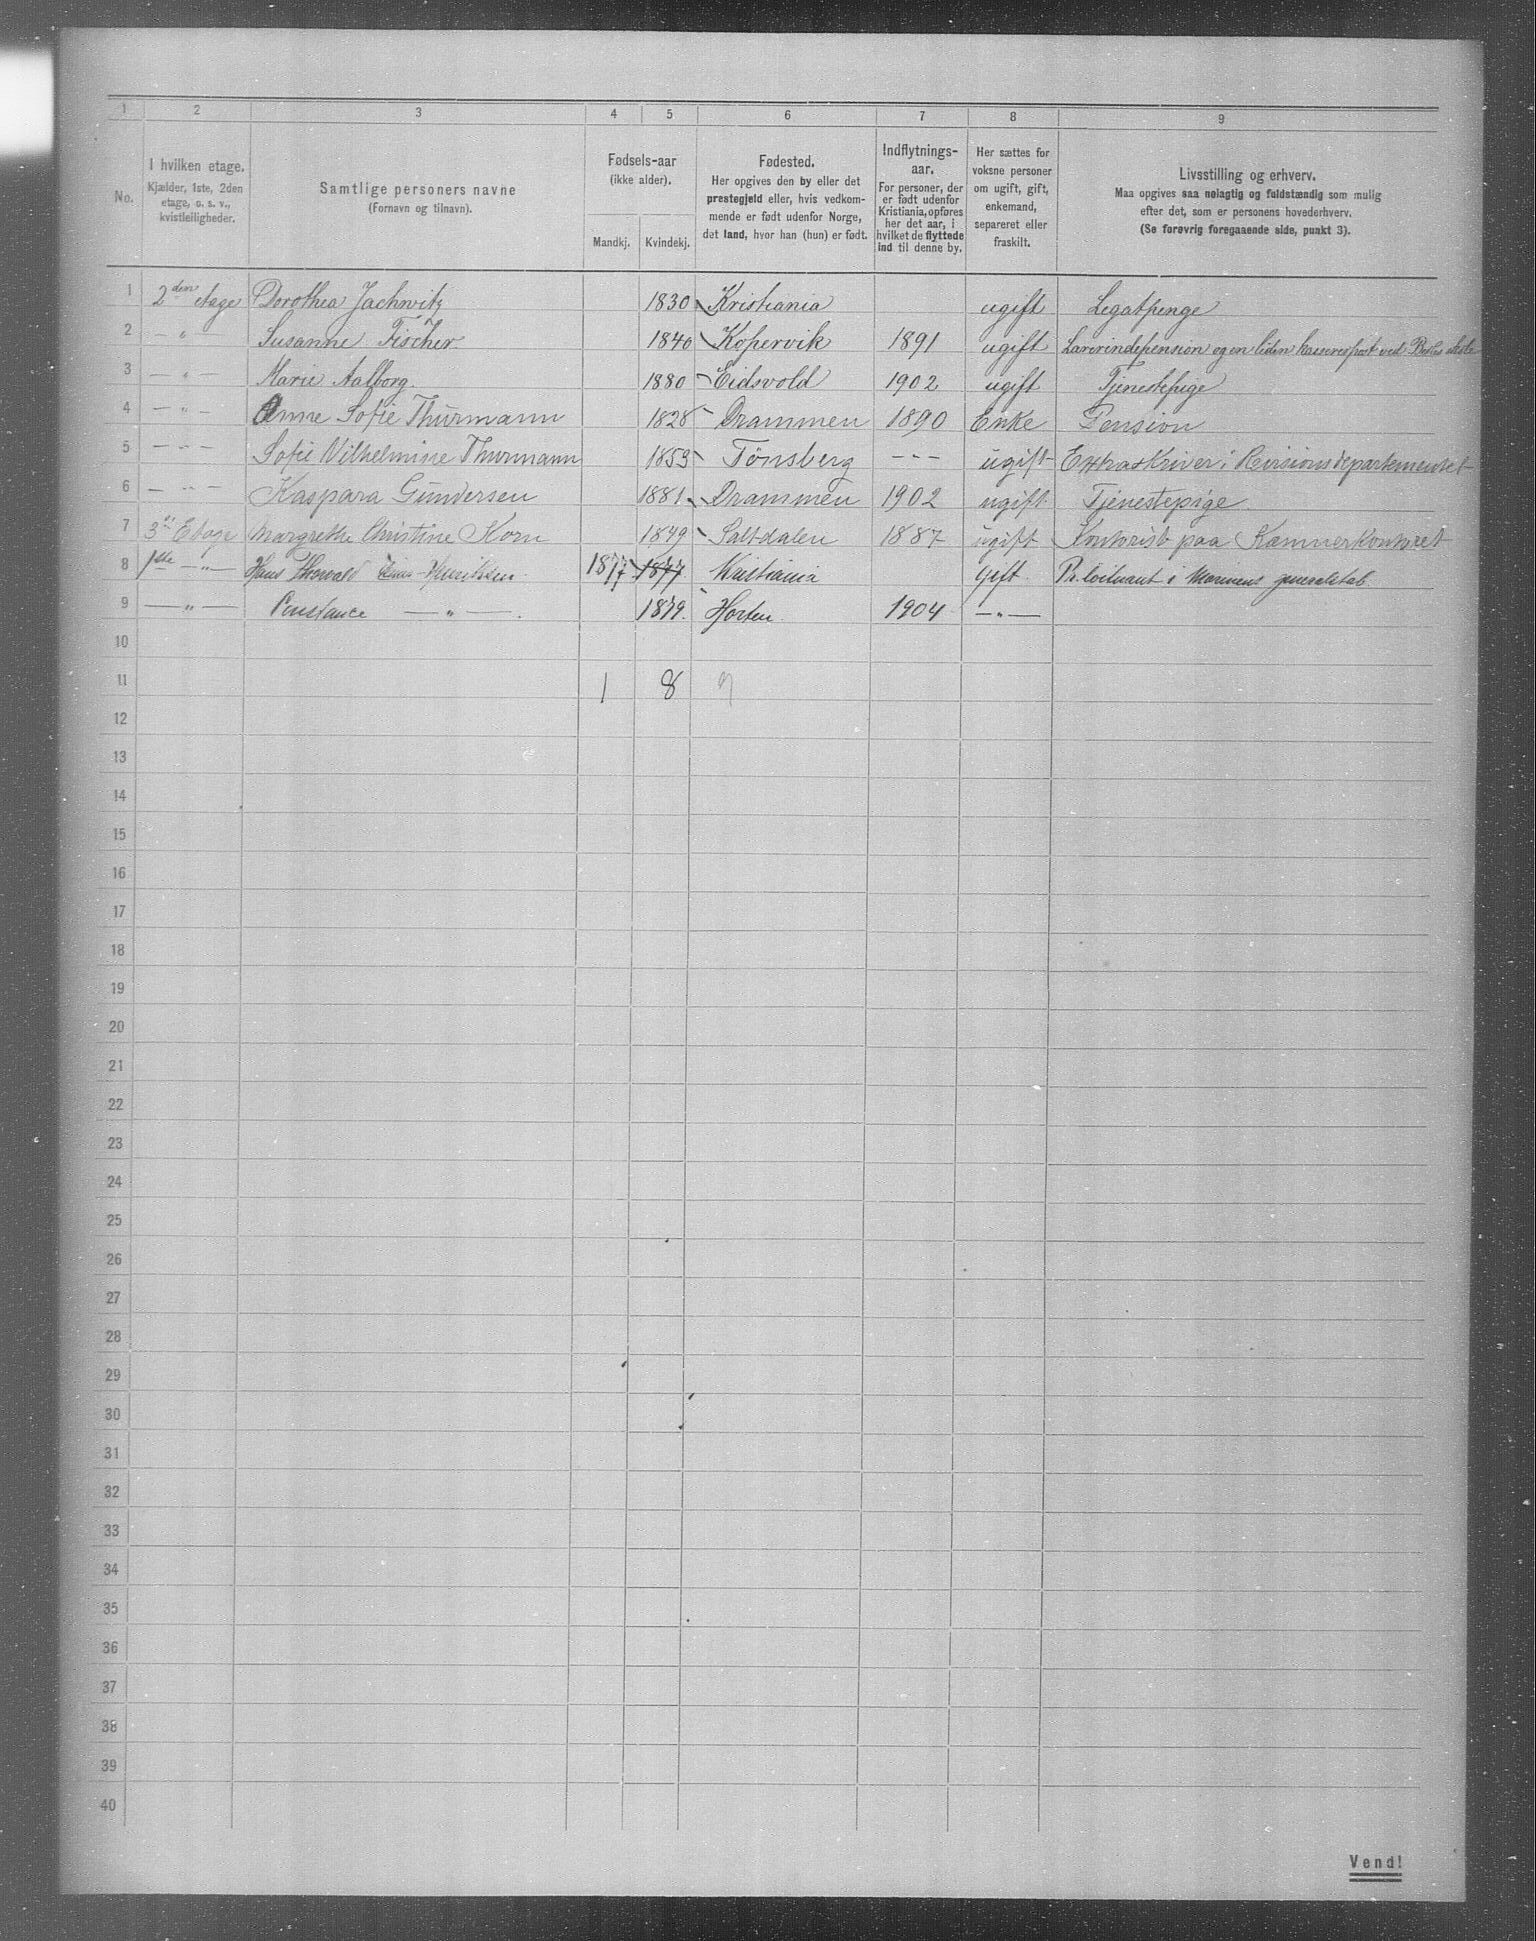 1 2 3 4 5 6 7 8 9
No.
I hvilken etage.
Kjælder, 1ste, 2den
etage, o. s. v.,
kvistleiligheder.
Samtlige personers navne
(Fornavn og tilnavn).
Fødsels-aar
(ikke alder).
Mandkj. Kvindekj.
Fødested.
Her opgives den by eller det
prestegjeld eller, hvis vedkom-
mende er født udenfor Norge,
det land, hvor han (hun) er født.
Indflytnings-
aar.
For personer, der
er født udenfor
Kristiania, opføres
her det aar, i
hvilket de flyttede
ind til denne by.
Her sættes for
voksne personer
om ugift, gift,
enkemand,
separeret eller
fraskilt.
Livsstilling og erhverv.
Maa opgives saa nøiagtig og fuldstændig som mulig
efter det, som er personens hovederhverv.
(Se forøvrig foregaaende side, punkt 3).
1 2den etage Dorothea Jachwitz 1830 Kristiania ugift Legatpenge
2 — " — Susanne Fischer 1840 Kopervik 1891 ugift Lærerindepension og en liden kasserpost ved
3 — " — Marie Aalborg. 1880 Eidsvold 1902 ugift Tjenestepige
4 — " — Anne Sofie Thurmann 1828 Drammen 1890 Enke Pension
5 — " — Sofie Vilhelmine Thurmann 1853 Tönsberg — " — ugift Extraskriver i Revisionsdepartementet
6 — " — Kaspara Gundersen 1881 Drammen 1902 ugift. Tjenestepige
7 3die Etage Margrethe Christine Korn 1879 Saltdalen 1887 ugift Kontorist paa Kæmnerkontoret
8 1ste — " — Hans Henriksen. 1877 1877 Kristiania Gift. Pr. løitnant i Marinens generalstab
9 — " — Constance — " — . 1879. Horten. 1904 — " —
10
11 1 8 9
12
13
14
15
16
17
18
19
20
21
22
23
24
25
26
27
28
29
30
31
32
33
34
35
36
37
38
39
40
Vend!